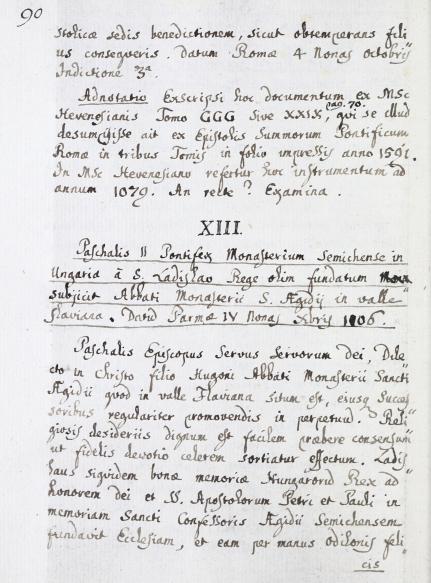 90
stolicæ sedis benedictionem, sicut obtemperans fili
us consequeris. Datum Romæ 4 Nonas Octobris
Indictione 3ª
Adnotatio Exscripsi hoc documentum ex MSc
Hevenesianis Tomo GGG sive XXIX, pag. 70. qui se illud
desumpsisse ait ex Epistolis Summorum Pontificum
Romæ in tribus Tomis in folio impressis anno 1591.
In MSc Hevenesiano refertur hoc instrumentum ad
annum 1079. An recte? Examina.
XIII.
Paschalis II Pontifex Monasterium Semichense in
Ungaria à S. Ladislao Rege olim fundatum
subjicit Abbati Monasterii S. Ægidij in valle
Flaviana. Datis Parmæ IV Nonas Xbris 1106.
Paschalis Episcopus Servus Servorum dei, Dile
cto in Christo filio Hugoni Abbati Monasterii Sancti
Ægidii quod in valle Flaviana situm est, ejusq Succes
soribus regulariter promovendis in perpetuum. Reli
giosis desideriis dignum est facilem præbere consensum
ut fidelis devotio celerem sortiatur effectum. Ladis
haus siquidem bonæ memoriæ Hungarorum Rex ad
honorem dei et B. Apostolorum Petri et Pauli in
memoriam Sancti Confessoris Ægidii Semichensem
fundavit Ecclesiam, et eam per manus Odilonis feli
cis